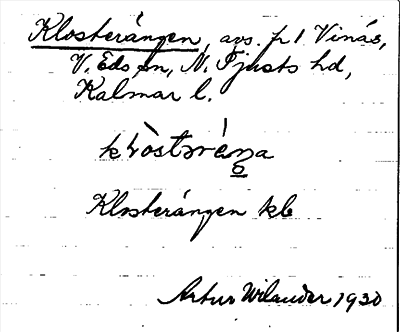 Klosterängen, avs. på 1 Vinäs,
V. Eds sn, N. Tjusts hd,
Kalmar l.
Klosterängen kb
Artur Wilander 1930